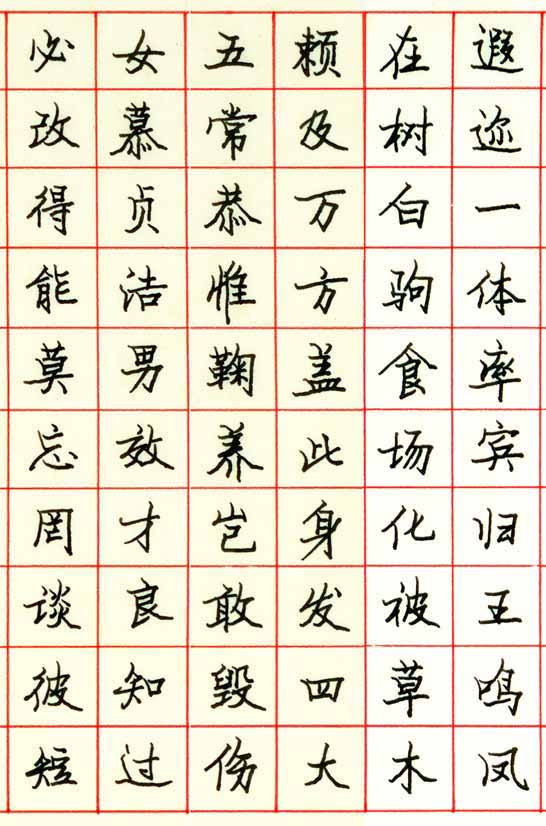 遐迩一体率宾归王鸣凤
在树白驹食场化被草木
赖及万方盖此身发四大
五常恭惟鞠养岂敢毁伤
女慕贞洁男效才良知过
必改得能莫忘罔谈彼短